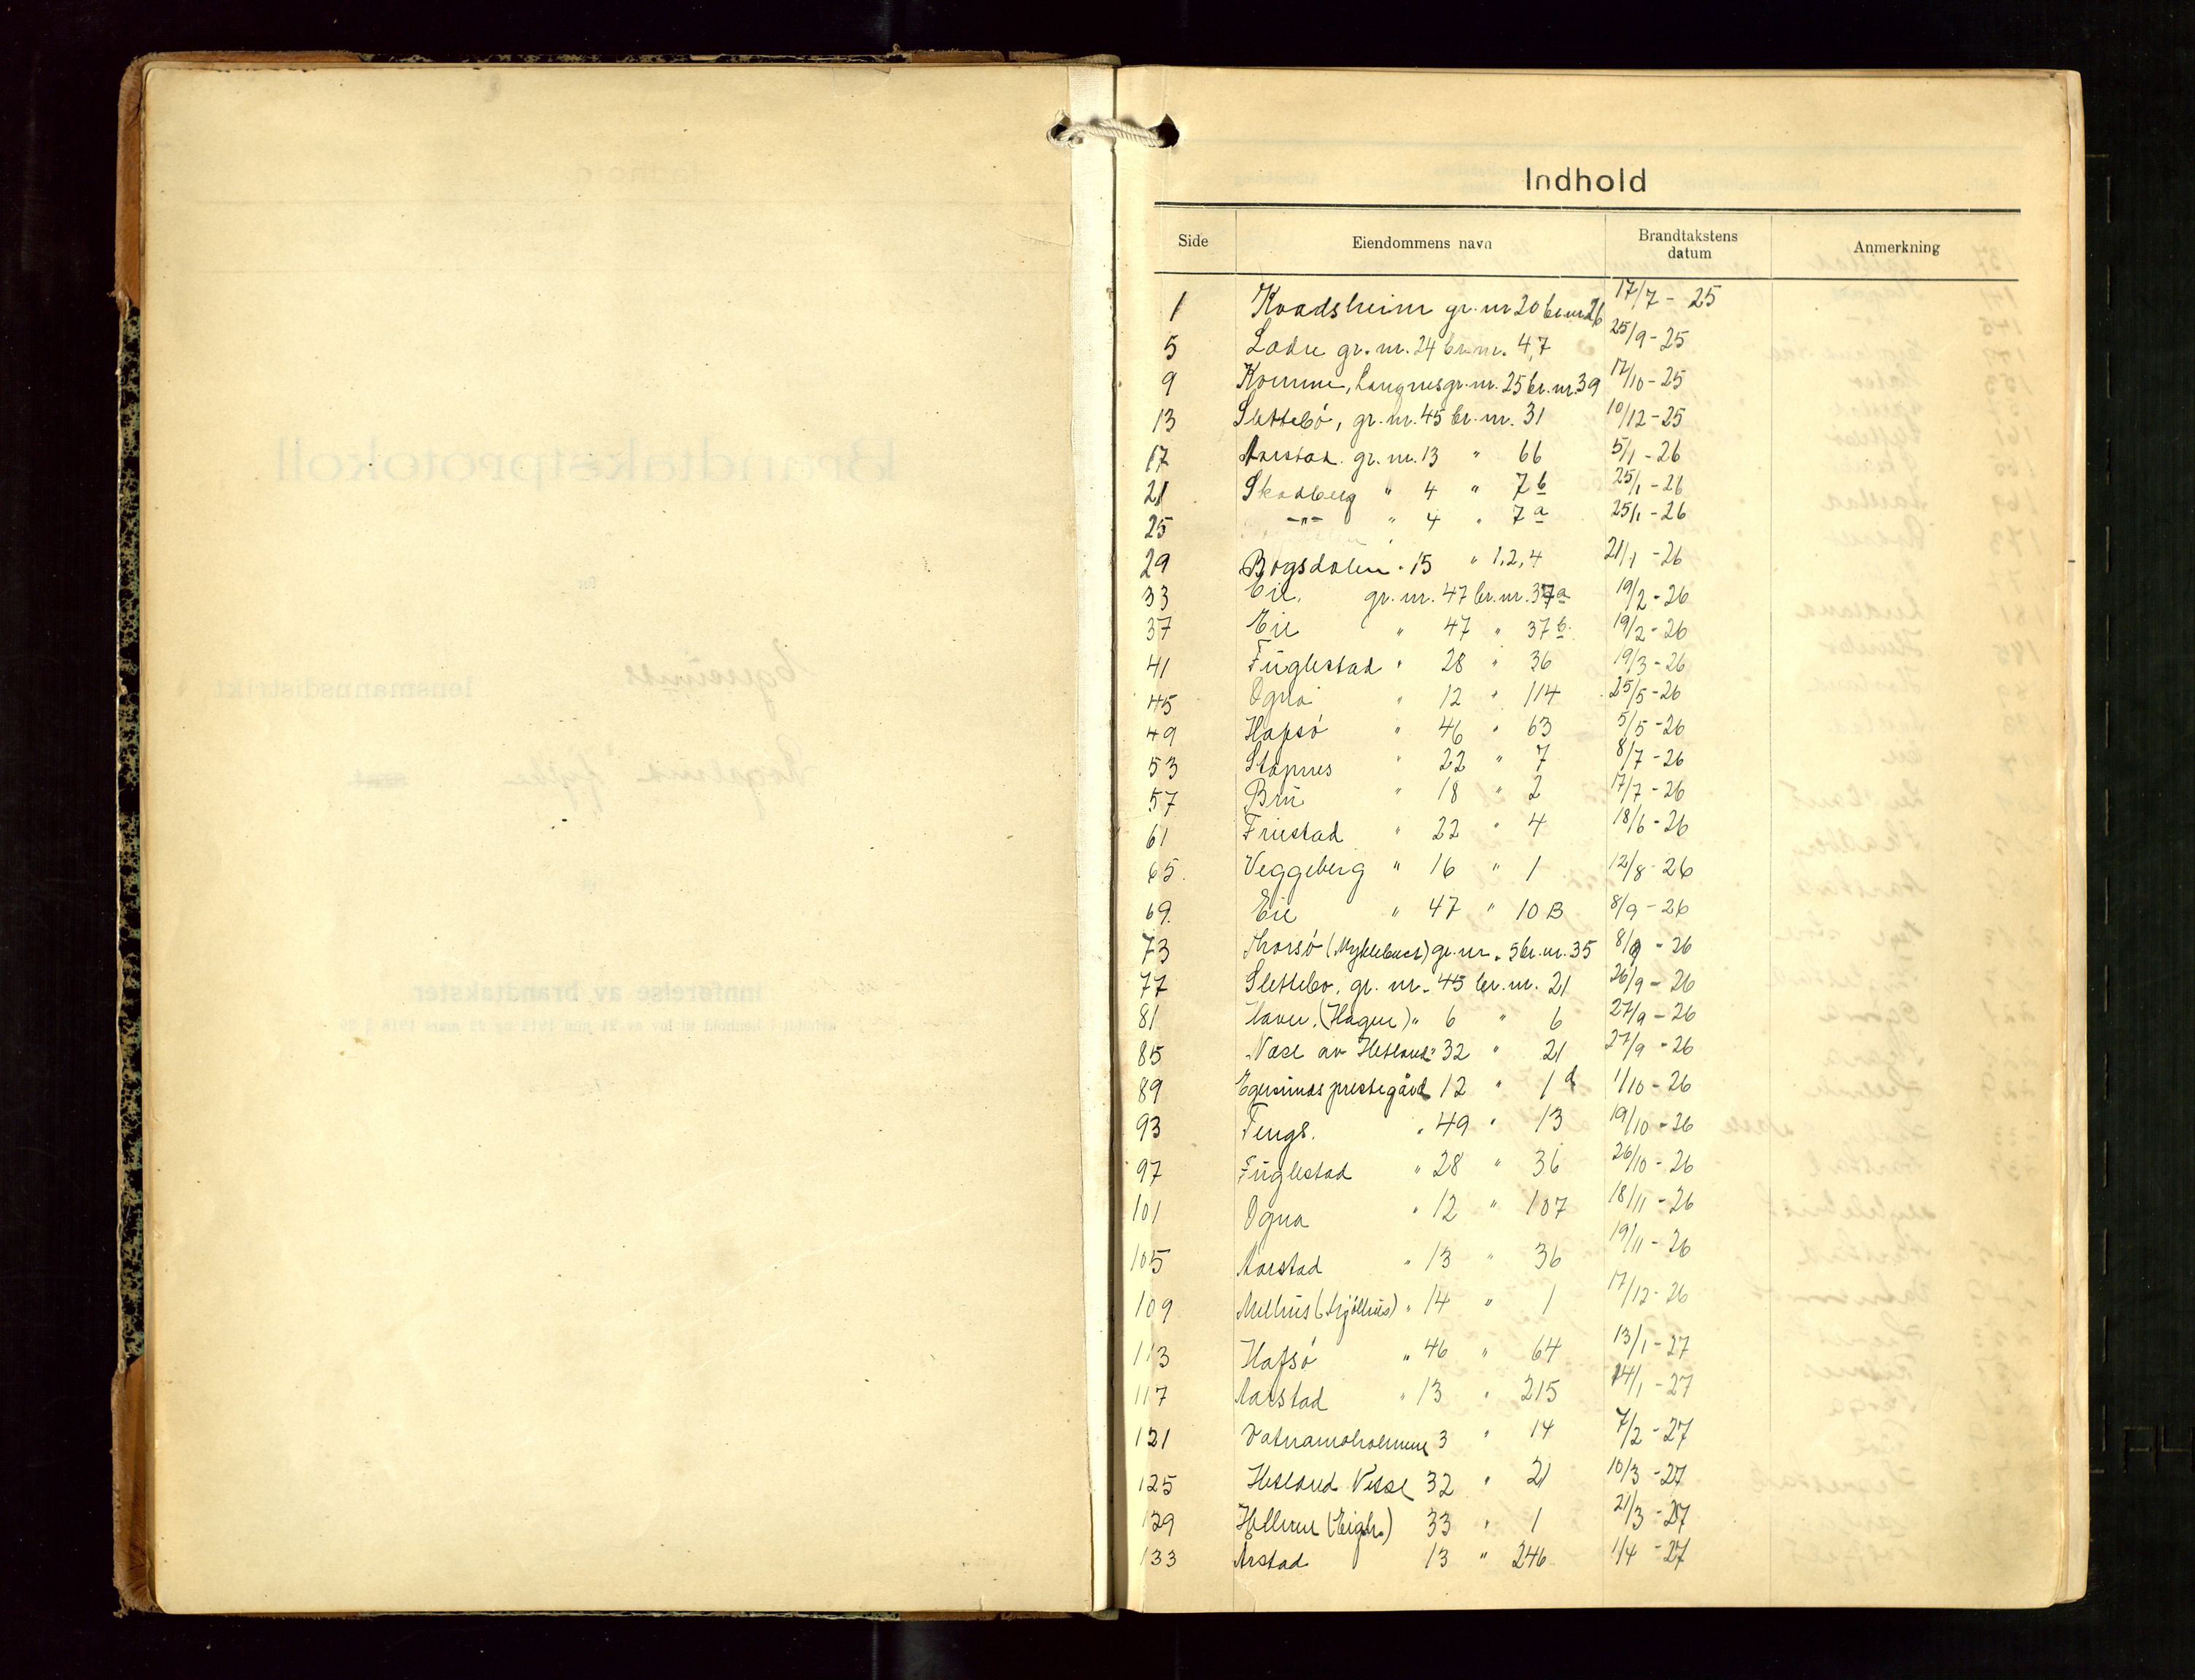 Indhold
Side Eiendommens navn Brandtakstens datum Anmerkning
1 Kvadsheim gr. nr 20 br. nr 26 17/7 - 25
5 Ladre gr. nr. 24 br. nr. 4,7 25/9 - 25
9 gr. nr. 25 br. nr. 39 17/10 - 25
13 Slettebö, gr. nr. 45 br. nr. 31 10/12 - 25
17 Aarstad. gr. nr. 13 " 66 5/1 - 26
21 Skadberg " 4 " 7 b 25/1 - 26
25 -"- " 4 " 7 a 25/1 - 26
29 Bögsdalen " 15 " 1,2,4 21/1 - 26
33 Eie. gr. nr. 47 br. nr. 37a 19/2 - 26
37 Eie " 47 " 37 b. 19/2 - 26
41 Fuglestad " 28 " 36 19/3 - 26
45 Ogna " 12 " 114 25/5 - 26
49 Hafsö " 46 " 63 5/5 - 26
53 Stapnes " 22 " 7 8/7 - 26
57 Bru " 18 " 2 17/7 - 26
61 Fristad " 22 " 4 18/6 - 26
65. Veggeberg " 16 " 1 12/8 - 26
69. Eie " 47 " 10 B 8/9 - 26
73 Thorsö (Myklebust) gr. nr. 5 br. nr. 35 8/9 - 26
77 Slettebö. gr. nr. 45 br. nr. 21 26/9 - 26
81 Havn. (Hagen) " 6 " 6 27/9 - 26
85 av Hetland " 32 " 21 27/9 - 26
89 Egersunds prestegård 12 " 1 d 1/10 - 26
93 Tengs. " 49 " 13 19/10 - 26
97 Fuglestad " 28 " 36 26/10 - 26
101 Ogna " 12 " 107 18/11 - 26
105 Aarstad " 13 " 36 19/11 - 26
109 Mellus (Skjöllus) " 14 " 1 17/12 - 26
113 Hafsö " 46 " 64 13/1 - 27
117 Aarstad " 13 " 215 14/1 - 27
121 3 " 14 7/2 - 27
125 Hetland Nesse 32 " 21 10/3 - 27
129 Hellren (Eigr.) 33 " 1 21/3 - 27
133 Årstad 13 " 246 1/4 - 27